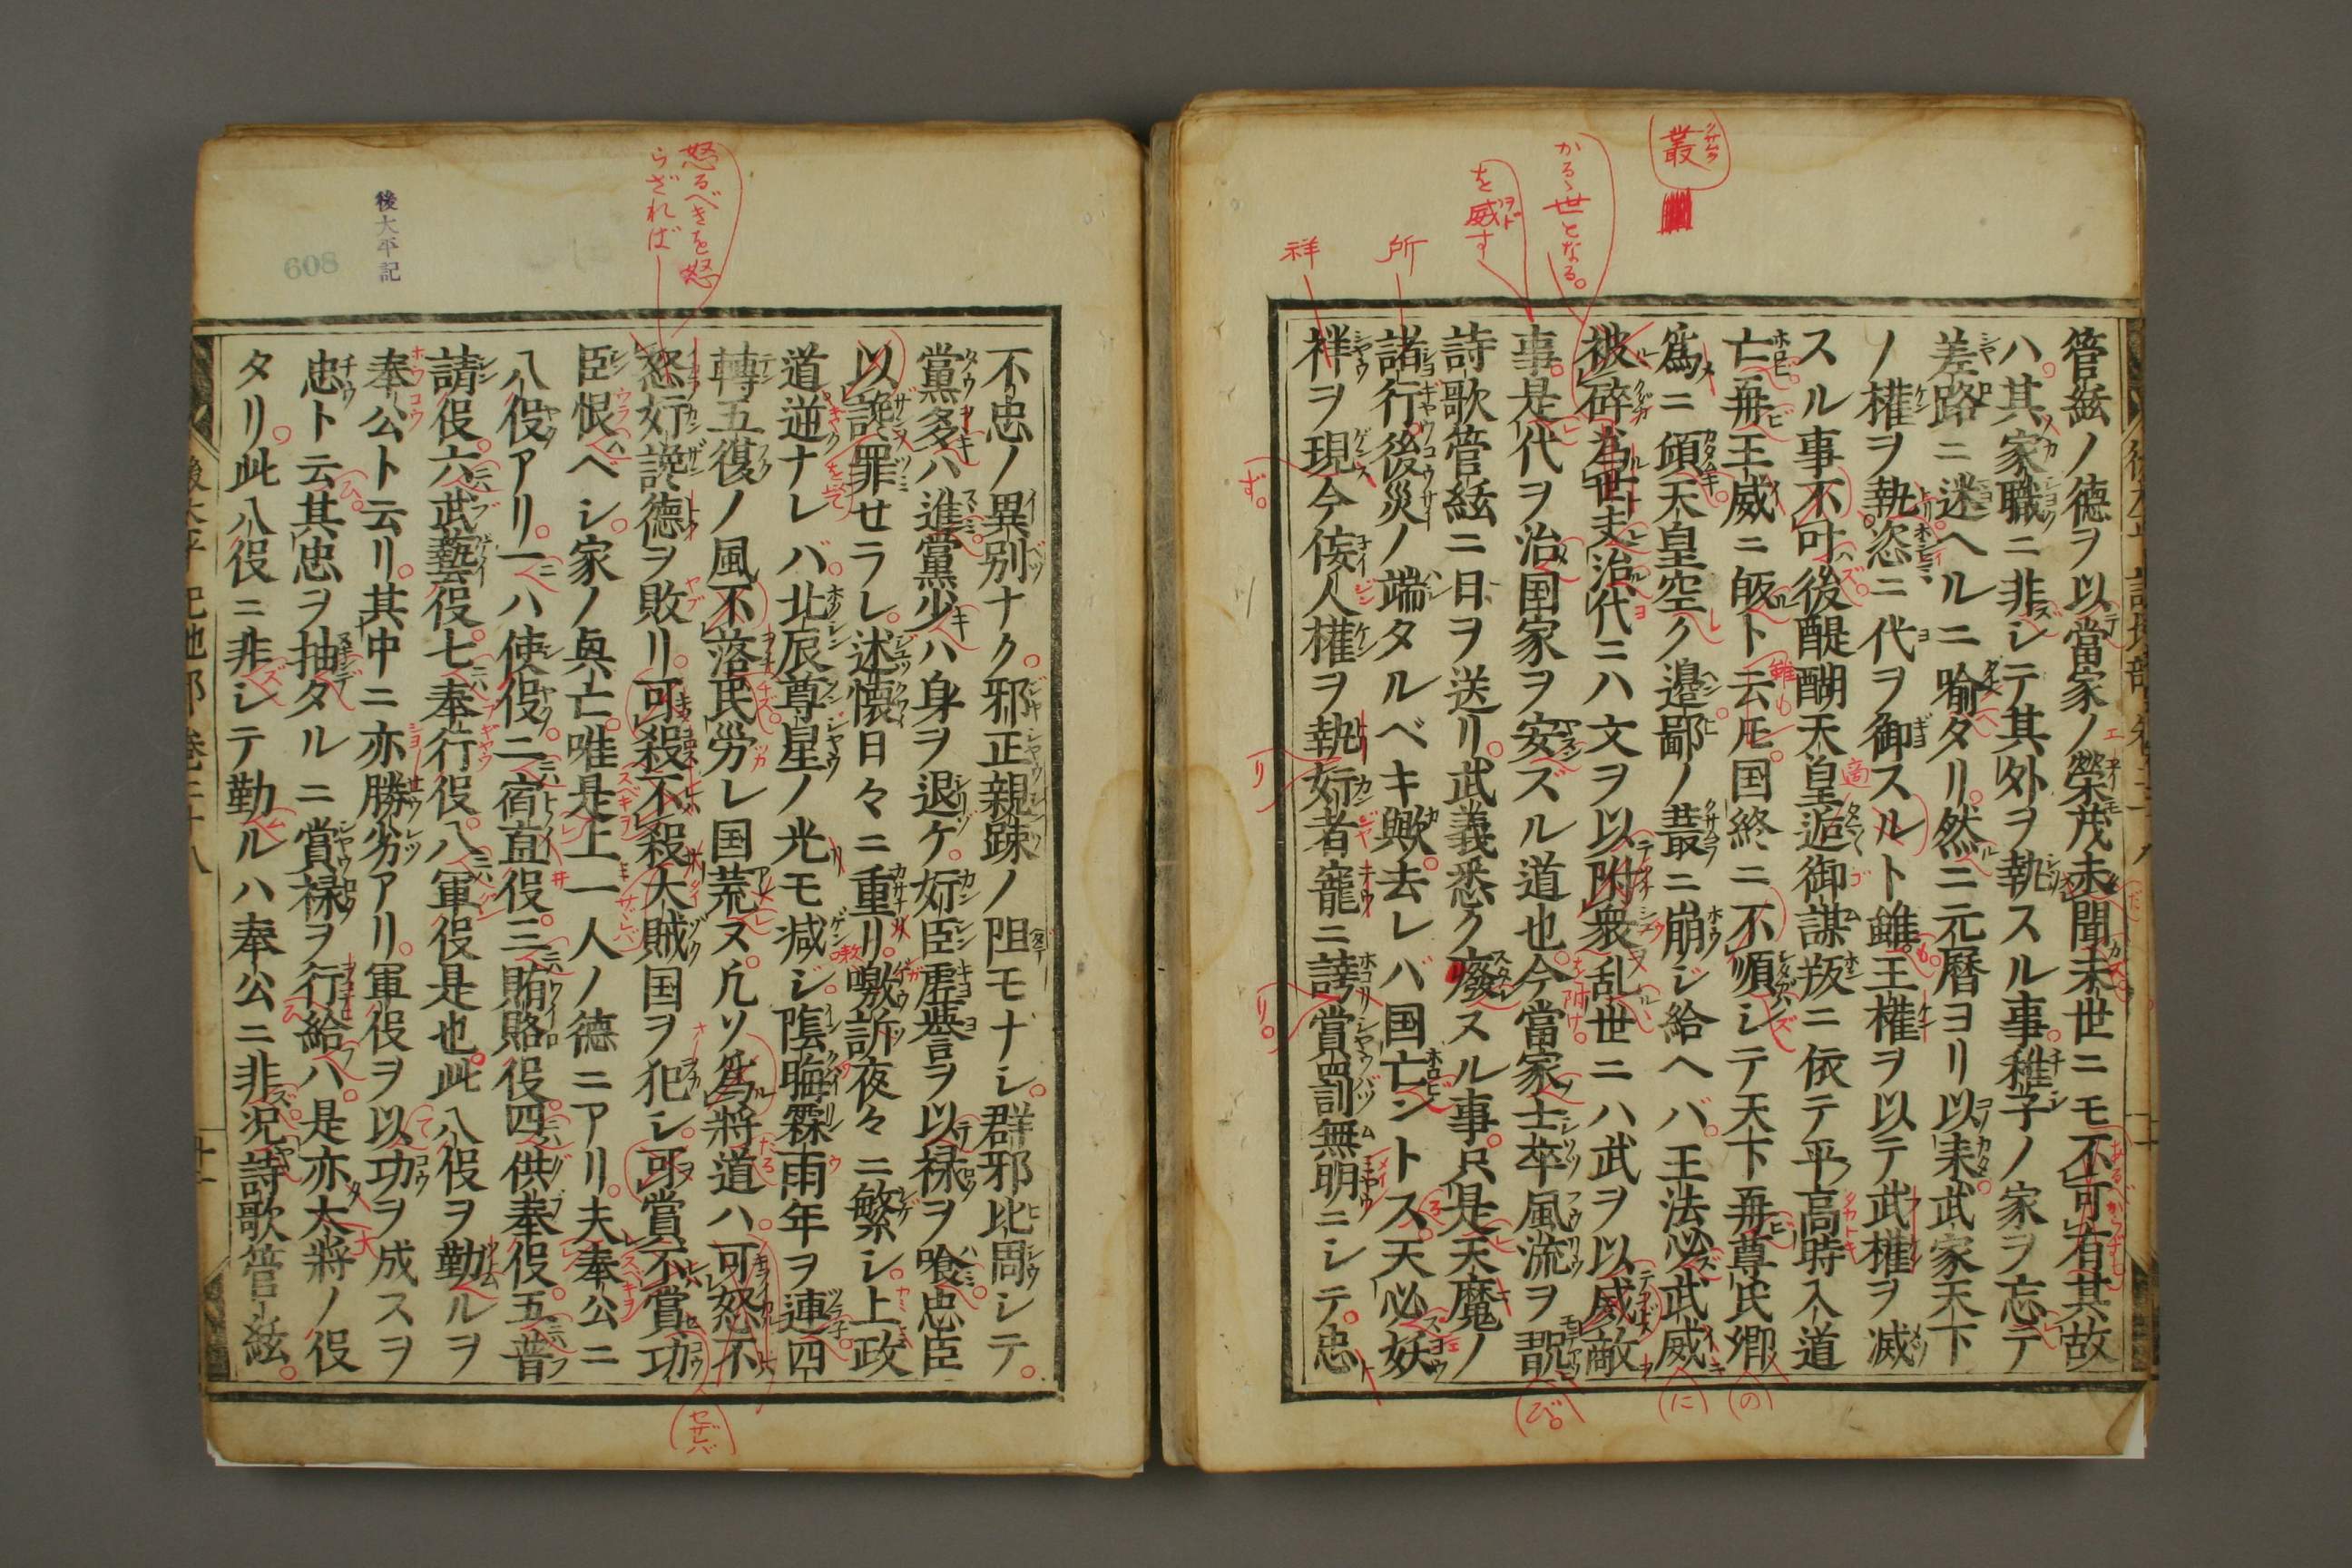 管絃ノ德ヲ以當家ノ榮茂未聞末世ニモ不可有其故
ハ其家職ニ非シテ其外ヲ執スル事稚子ノ家ヲ忘テ
差路ニ迷ヘルニ喻タリ然ニ元曆ヨリ以來武家天下
ノ權ヲ執恣ニ代ヲ御スルト雖王權ヲ以テ武權ヲ滅
スル事不叶後醍醐天皇近御謀叛ニ依テ平高時入道
亡再王威ニ皈ト云𪜈国終ニ不順シテ天下再尊氏卿
爲ニ傾天皇空ク邊鄙ノ叢ニ崩シ給ヘバ王法必武威
被碎為世夫治代ニハ文ヲ以附衆乱世ニハ武ヲ以威敵
事是代ヲ治国家ヲ安ズル道也今當家士卒風流ヲ翫
詩歌管絃ニ日ヲ送リ武義悉ク廢スル事只是天魔ノ
諸行後災ノ端タルベキ歟去レバ国亡ントス天必妖
祥ヲ現今侫人權ヲ執奸者寵ニ誇賞罰無明ニシテ忠
不忠ノ異別ナク邪正親踈ノ阻モナシ群邪比周シテ
黨多ハ進黨少ハ身ヲ退ケ奸臣虛誉ヲ以祿ヲ喰忠臣
以讒罪せラレ述懷日々ニ重リ嗷訴夜々ニ繁シ上政
道逆ナレバ北辰尊星ノ光モ減ジ陰晦霖雨年ヲ連四
轉五復ノ風不落民労レ国荒ヌ凡ソ爲將道ハ可怒不
怒奸讒德ヲ敗リ可殺不殺大賊国ヲ犯シ可賞不賞功
臣恨ベシ家ノ興亡唯是上一人ノ德ニアリ夫奉公ニ
八役アリ一ハ使役二宿直役三賄賂役四供奉役五普
請役六武藝役七奉行役八軍役是也此八役ヲ勤ルヲ
奉公ト云リ其中ニ亦勝劣アリ軍役ヲ以功ヲ成スヲ
忠ト云其忠ヲ抽タルニ賞祿ヲ行給ハ是亦大將ノ役
タリ此八役ニ非シテ勤ルハ奉公ニ非況詩歌管絃
叢
かるゝ世となる。
を威す
所
祥
怒るべきを怒
らざれば
後太平記
608